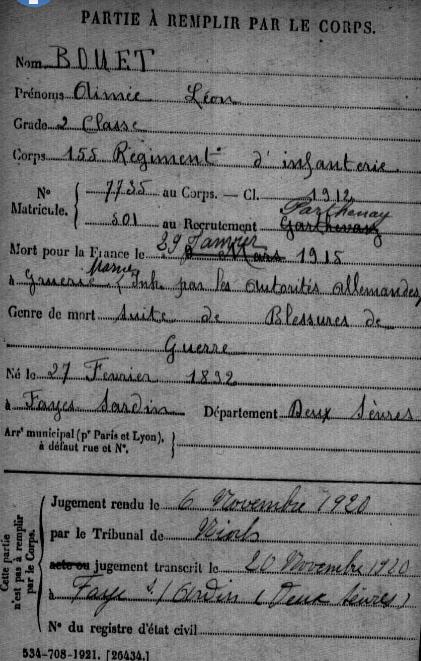 PARTIE À REMPLIR PAR LE CORPS.
Nom BOUET
Prénoms Aimée Léon
Grade 2 Classe
Corps 155 Régiment d'infanterie
N° Matricule. { 7735 au Corps. — Cl. 1912
501 au Recrutement Parthenay
Mort pour la France le 29 Janvier 1915
à Gruerie Marne (Inh par les autorités allemandes)
Genre de mort Suite de Blessures de
Guerre
Né le 27 Fevrier 1892
à Fayes Sardin Département Deux Sèvres
Arrt municipal (pr Paris et Lyon), à défaut rue et N°. }
Cette partie n'est pas à remplir par le Corps.
Jugement rendu le 6 Novembre 1920
par le Tribunal de Niort
acte ou jugement transcrit le 20 Novembre 1920
à Faye s/ Ardin (Deux Sèvres)
N° du registre d'état civil
534-708-1921. [26434.]